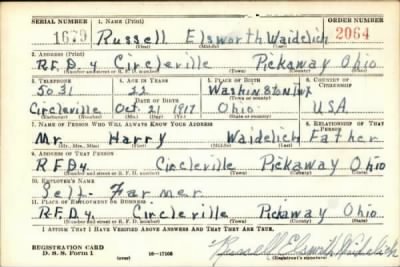 SERIAL NUMBER 1. NAME (Print) ORDER NUMBER
1679 Russell Elsworth Waidelich 2064
(First) (Middle) (Last)
2. ADDRESS (Print)
R.F.D 4 Circleville Pickaway Ohio
(Number and street or R. F. D. number) (Town) (County) (State)
3. TELEPHONE 4. AGE IN YEARS 5. PLACE OF BIRTH 6. COUNTRY OF CITIZENSHIP
5031 22 Washington
(Town or county)
Circleville Oct. 21 1917 Ohio U.S.A.
7. NAME OF PERSON WHO WILL ALWAYS KNOW YOUR ADDRESS 8. RELATIONSHIP OF THAT PERSON
Mr Harry Waidelich Father
(Mr., Mrs., Miss) (First) (Middle) (Last)
9. ADDRESS OF THAT PERSON
R F D 4. Circleville Pickaway Ohio
(Number and street or R. F. D. number) (Town) (County) (State)
10. EMPLOYER'S NAME
Self - Farmer
11. PLACE OF EMPLOYMENT OR BUSINESS
R.F.D 4. Circleville Pickaway Ohio
(Number and street or R. F. D. number) (Town) (County) (State)
I AFFIRM THAT I HAVE VERIFIED ABOVE ANSWERS AND THAT THEY ARE TRUE.
REGISTRATION CARD
D. S. S. Form 1 (over) 16-17105 Russell Elsworth Waidelich
(Registrant's signature)